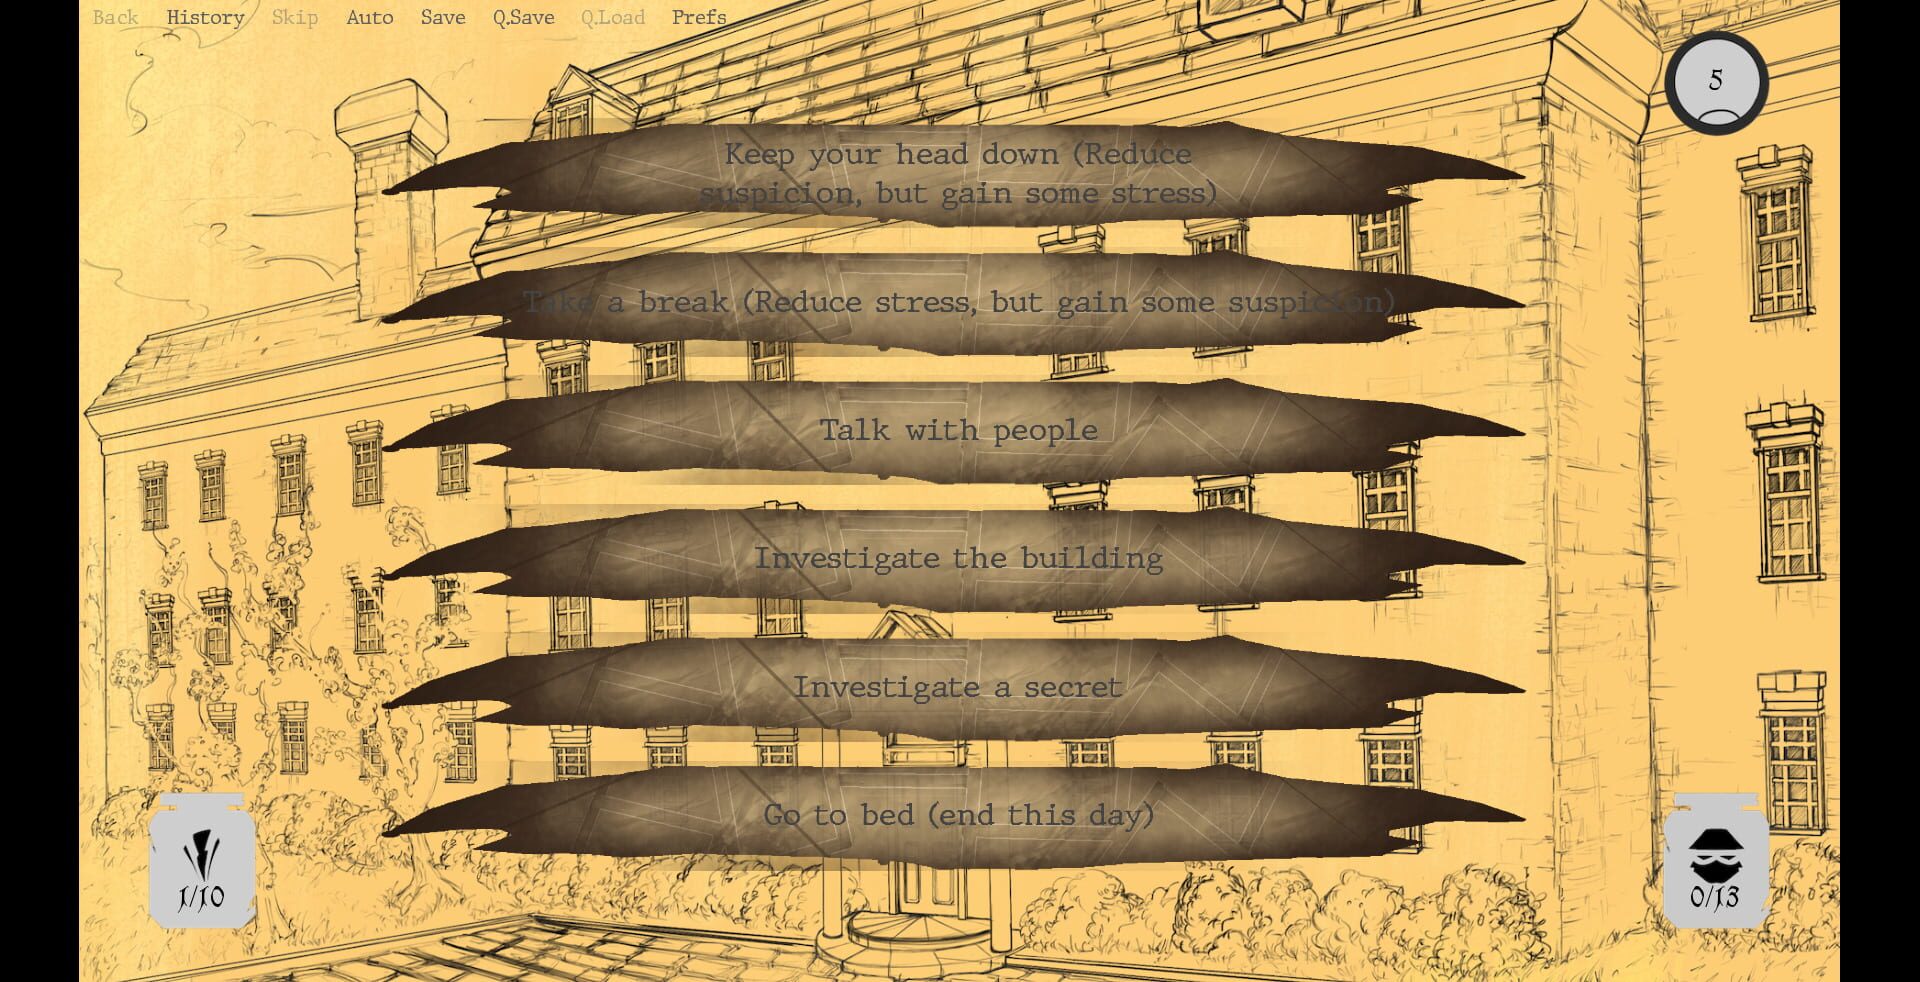 Back History Skip Auto Save Q.Save Q.Load Prefs
5
Keep your head down (Reduce
suspicion, but gain some stress)
Take a break (Reduce stress, but gain some suspicion)
Talk with people
Investigate the building
Investigate a secret
Go to bed (end this day)
1/10
0/13